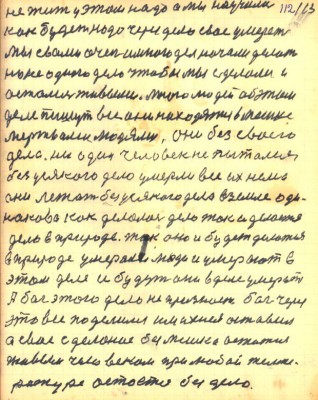 не жить у этом надо а мы научили 112/113
как будет надо через дело свое умерет
мы своими очень много дел начали делать
ни одного дело чтобы мы сделали и
остались живыми. много людей об этом
деле пишут все они находятся
мертвыми людями, они без своего
дела. ни один человек не пытался
без усякого дело умерли все их нема
они лежат без усякого дела в земле оди-
накова как делалось дело так и делается
дело в природе. так оно и будет делатся
в природе умерали люди и умерают в
этом деле и будут они в деле умерать
А бог этого дело не признает бог через
это все поделился им жизня оставил
а свае сделаное бы мешка остатся
живым человеком при любой темпе-
ратуре остатся без дело.